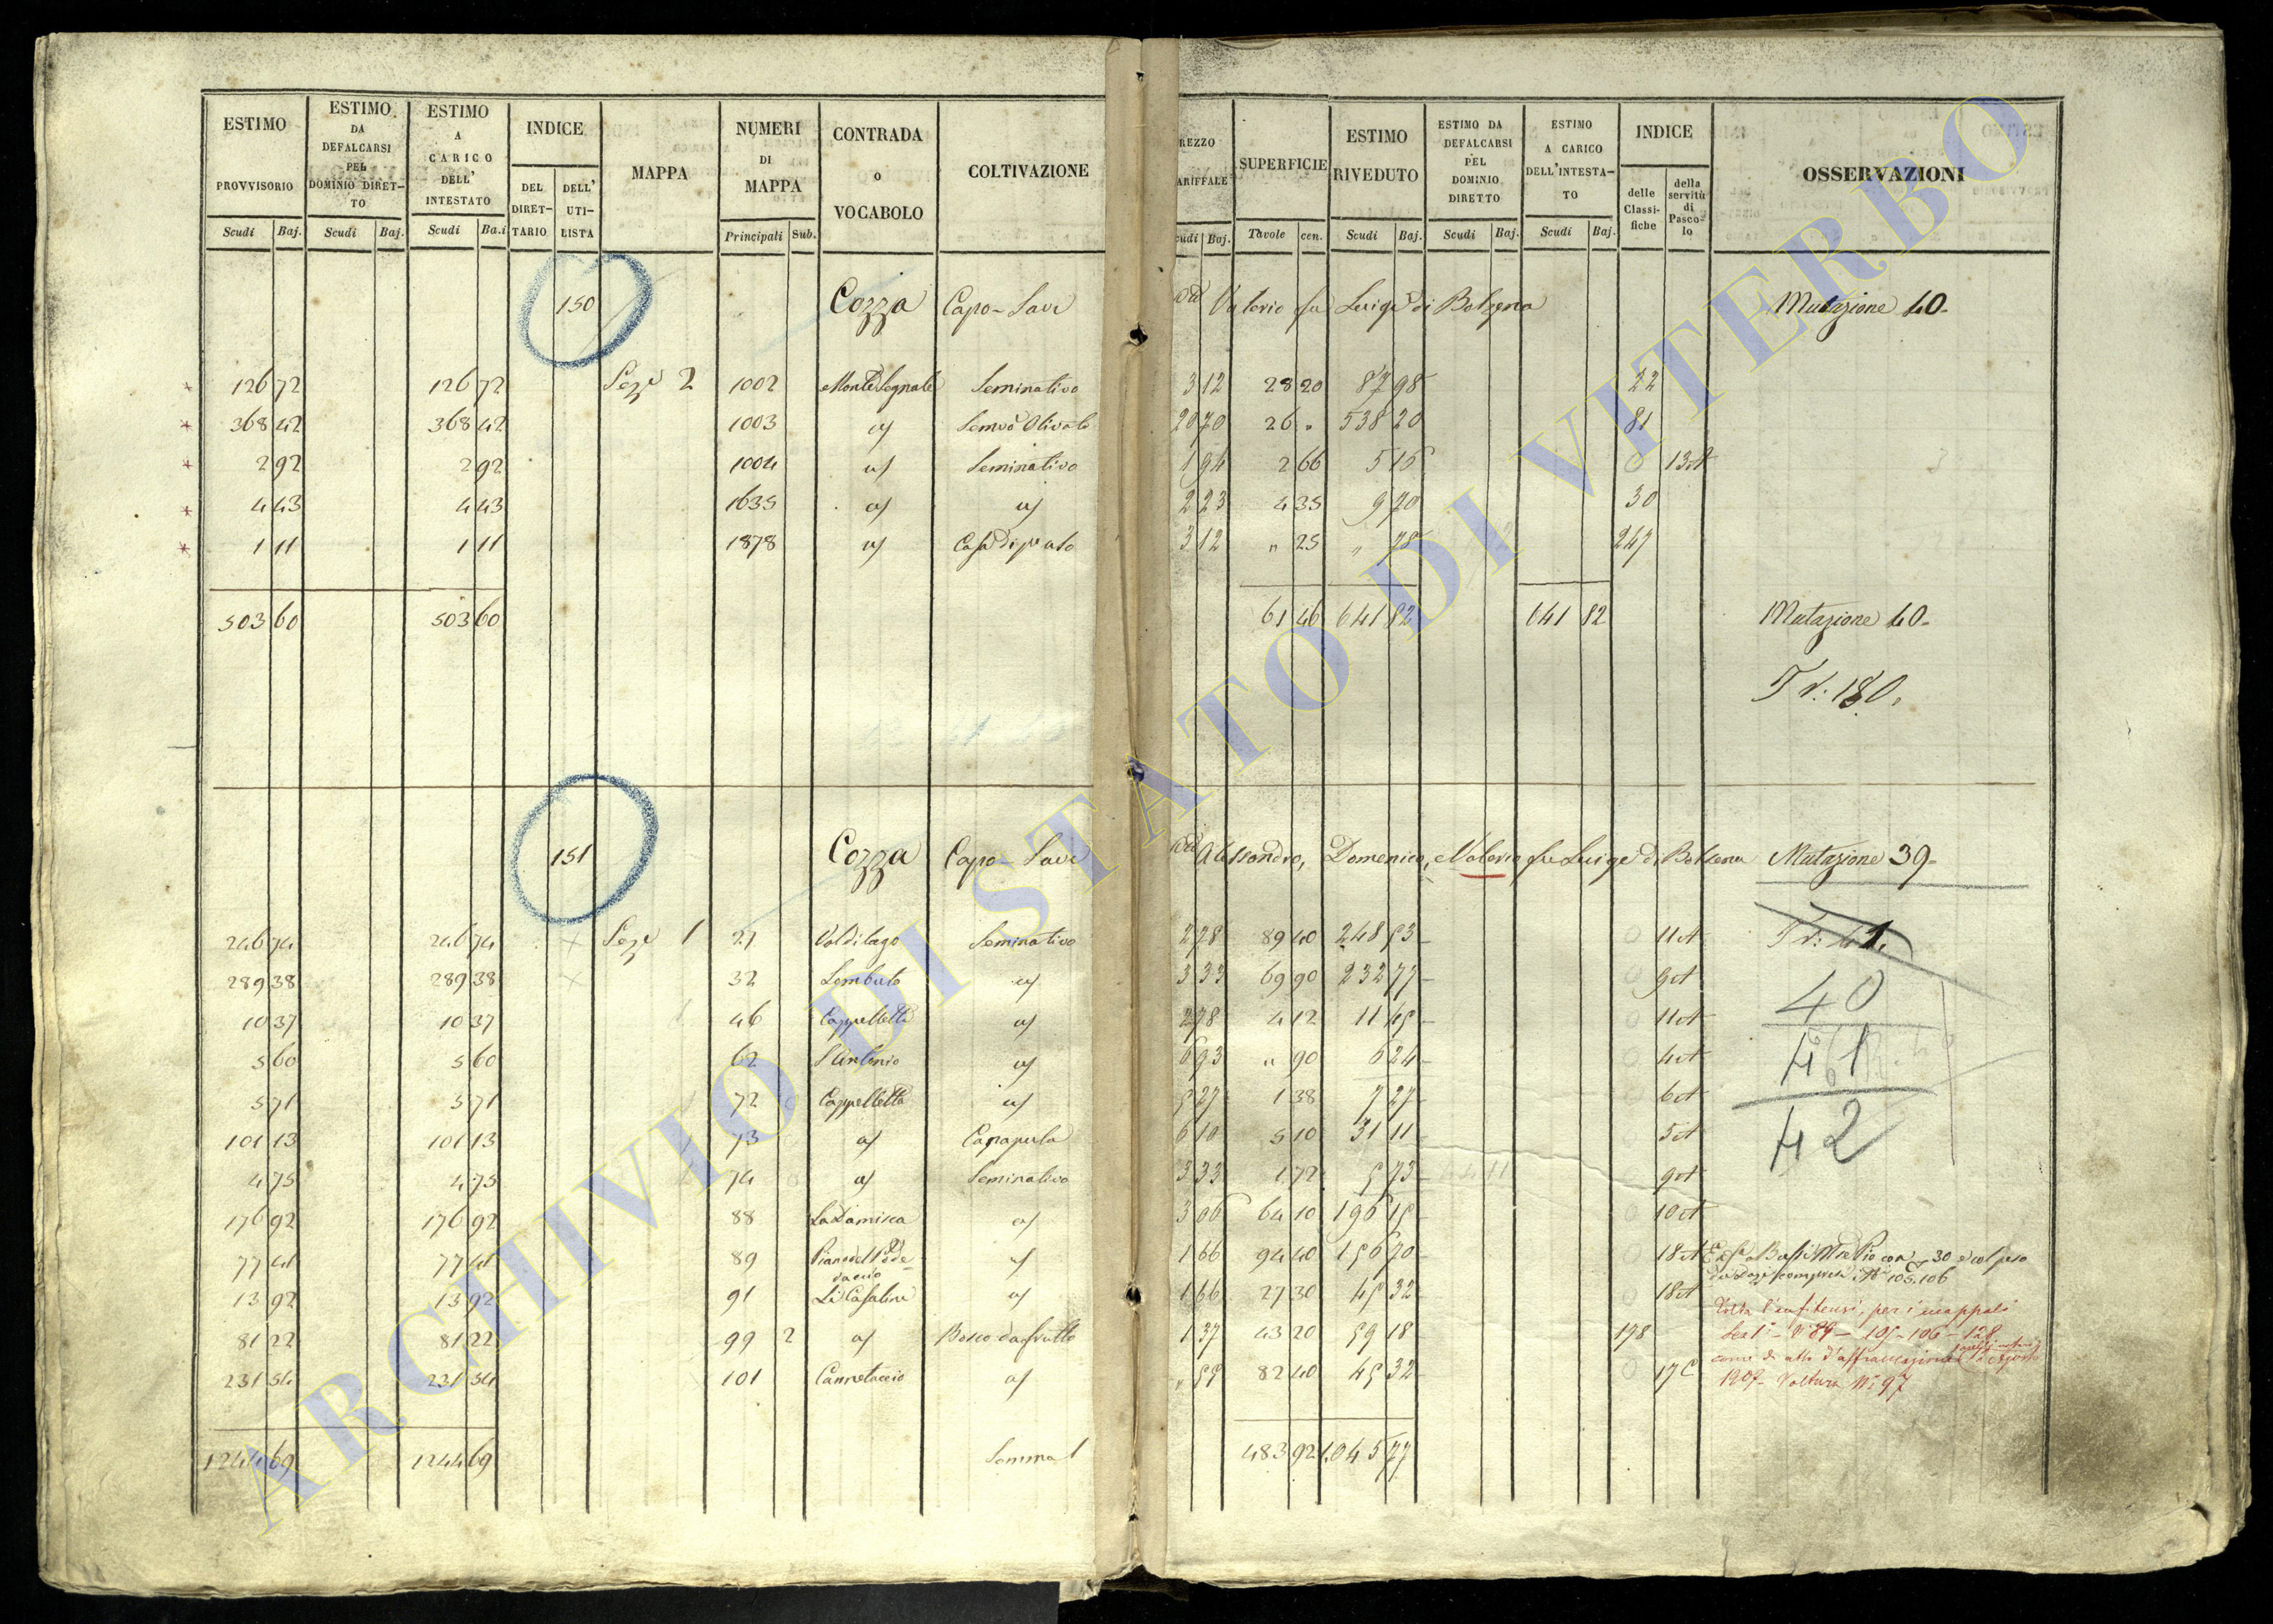 ESTIMO PROVVISORIO Scudi Baj.
ESTIMO DA DEFALCARSI PEL DOMINIO DIRETTO Scudi Baj.
ESTIMO A CARICO DELL' INTESTATO Scudi Ba.i
INDICE DEL DIRET-TARIO DELL' UTI-LISTA
MAPPA
NUMERI DI MAPPA Principali Sub.
CONTRADA o VOCABOLO
COLTIVAZIONE
REZZO ARIFFALE cudi Baj.
SUPERFICIE Tavole cen.
ESTIMO RIVEDUTO Scudi Baj.
ESTIMO DA DEFALCARSI PEL DOMINIO DIRETTO Scudi Baj.
ESTIMO A CARICO DELL'INTESTA-TO Scudi Baj.
INDICE delle Classi-fiche della servitù di Pasco-lo
OSSERVAZIONI
150 Cozza Capo-Savi Valerio fu Luigi di Bolsena Mutazione 40-
126 72 126 72 Sez.e 2 1002 Montesegnale Seminativo 3 12 28 20 87 98 22
368 42 368 42 1003 a/ Semvo Olivato 20 70 26 " 538 20 81
2 92 2 92 1004 a/ Seminativo 1 94 2 66 5 16 0 13 A
4 43 4 43 1635 a/ a/ 2 23 4 35 9 70 30
1 11 1 11 1878 a/ Casa di prato 3 12 " 25 " 78 247
503 60 503 60 61 46 641 82 641 82 Mutazione 40-
Tr: 180.
151 Cozza Capo-Savi Alessandro, Domenico, Valerio fu Luigi di Bolsena Mutazione 39-
246 74 246 74 Sez.e 1 21 Valdilago Seminativo 2 78 89 40 248 53 0 11 A Tr: 41.
289 38 289 38 32 Lombuto a/ 3 33 69 90 232 77 0 9 A
40
10 37 10 37 46 Cappelletta a/ 2 78 4 12 11 45 0 11 A
5 60 5 60 62 S Antonio a/ 6 93 " 90 6 24 0 4 A
41
5 71 5 71 72 Cappelletta a/ 5 27 1 38 7 27 6 A
101 13 101 13 73 a/ Canapula 6 10 5 10 31 11 5 A
42
4 75 4 75 74 a/ Seminativo 3 33 1 72 5 73 9 A
176 92 176 92 88 La Damisca a/ 3 06 64 10 196 15 0 10 A
77 41 77 41 89 Piano del Pode-raccio a/ 1 66 94 40 156 70 0 18 A
13 92 13 92 91 Li Casalini a/ 1 66 27 30 45 32 0 18 A
81 22 81 22 99 2 a/ Bosco da frutto 1 37 43 20 59 18 178
231 54 231 54 101 Cannetaccio a/ " 55 82 40 45 32 0 17 C
30 e col peso
105. 106
Tolta l'enfiteusi, per i mappali
Sez 1a - N 89 - 105 - 106 - 128
come da atto d'affrancazione 2 Agosto
1907 - Voltura N: 97
1244 69 1244 69 Somma 483 92 1.045 77
ARCHIVIO DI STATO DI VITERBO